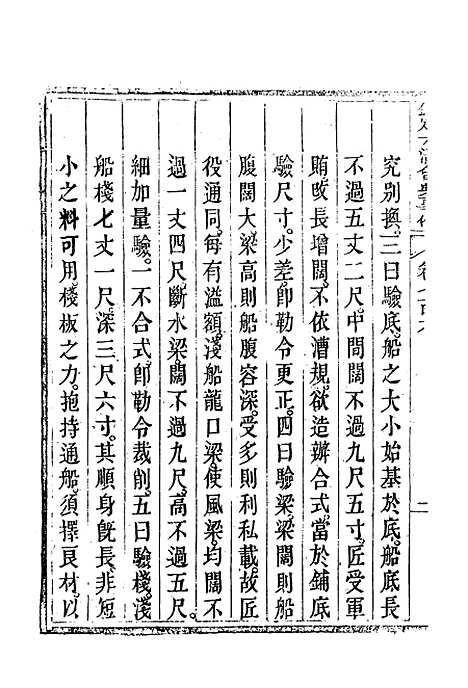 究別換。三曰驗底。船之大小始基於底。船底長
不過五丈二尺。中間闊不過九尺五寸。匠受軍
賄。改長增闊。不依漕規。欲造辦合式。當於鋪底
驗尺寸。少差。卽勒令更正。四曰驗梁。梁闊則船
腹闊大。梁高則船腹容深。受多則利私載。故匠
役通同。每有溢額。淺船龍口梁。使風梁。均闊不
過一丈四尺。斷水梁。闊不過九尺。高不過五尺。
細加量驗。一不合式。卽勒令裁削。五曰驗棧。淺
船棧七丈一尺。深三尺六寸。其順身旣長。非短
小之料可用。棧板之力。抱持通船。須擇良材。以